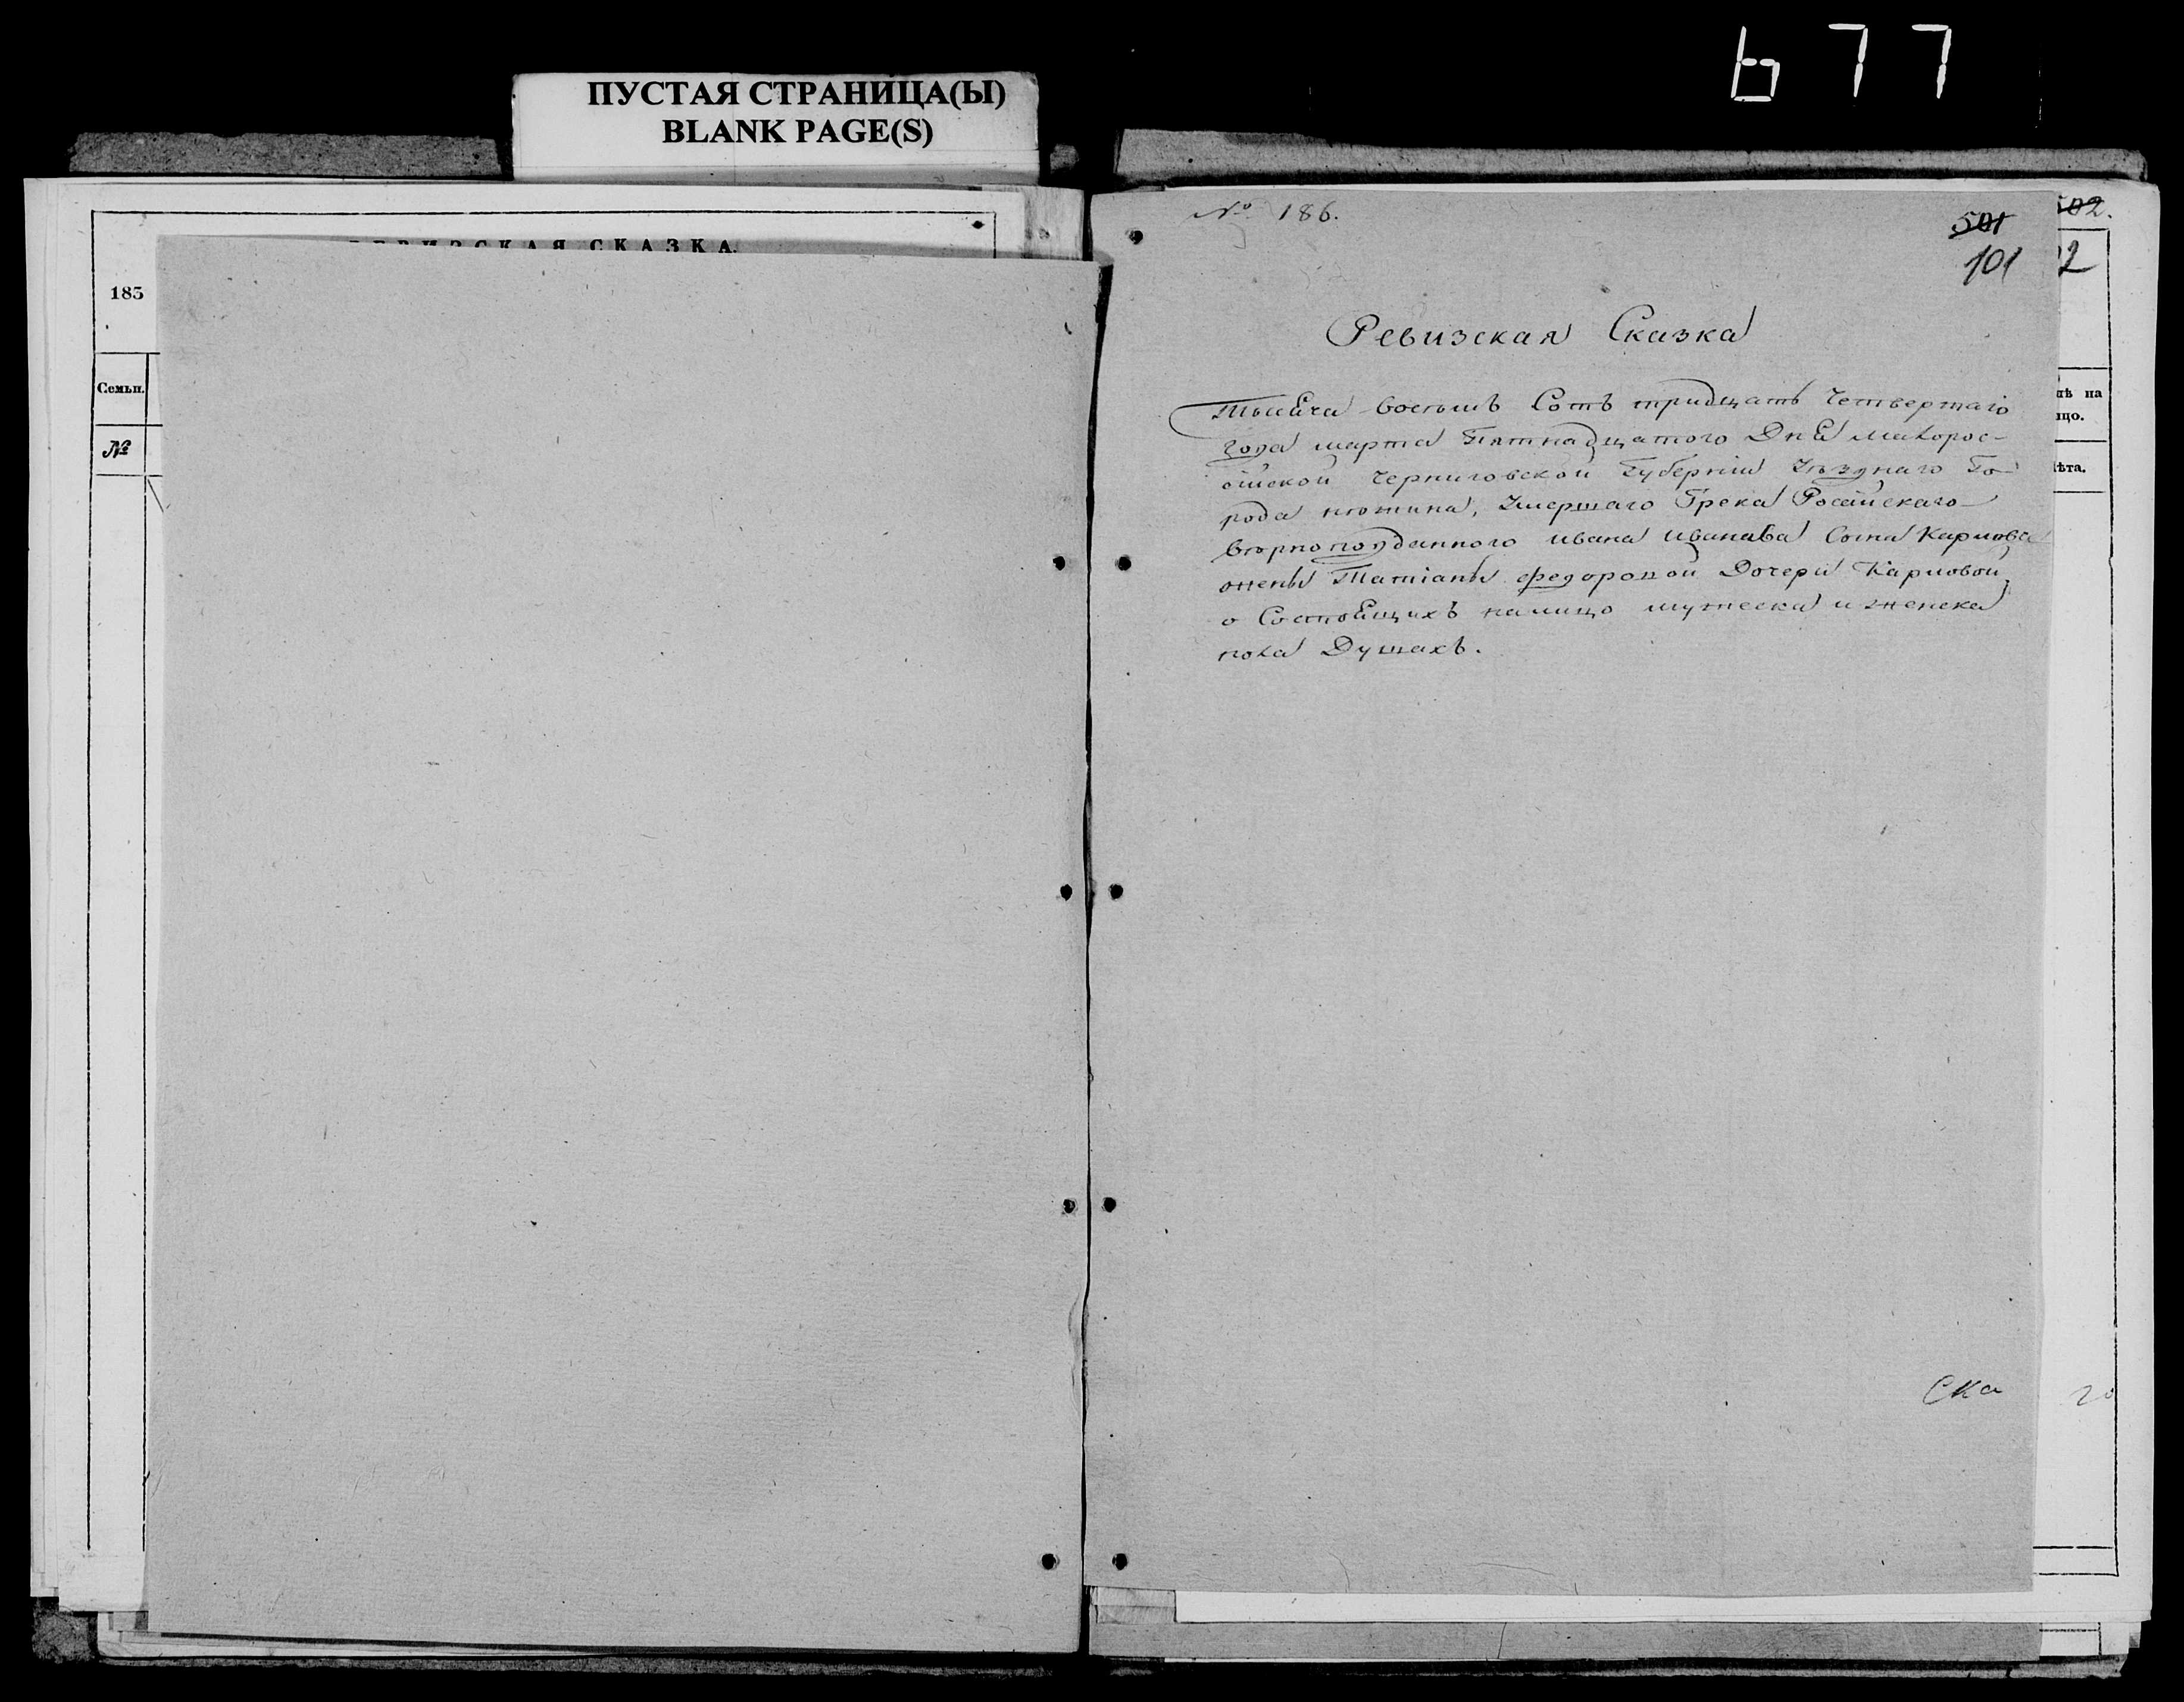 677
ПУСТАЯ СТРАНИЦА(Ы)
BLANK PAGE(S)
РЕВИЗСКАЯ СКАЗКА.
185
Семьи.
№
№ 186.
501
101
502.
2
Ревизская Сказка
Тысеча восемь Сотъ тридцать Четвертаго
года марта Пятнадцатого Дня малорос-
ойской Черниговской Губернии Уѣзднаго Го-
рода нѣжина, Умершаго Грека Росийскаго
вѣрноподданного ивана иванава Сына Кармова
жены Татіаны федоровой Дочери Кармовой,
о Состоящихъ налицо мужеска и женска
пола Душахъ.
на
цо.
ѣта.
Ска
20